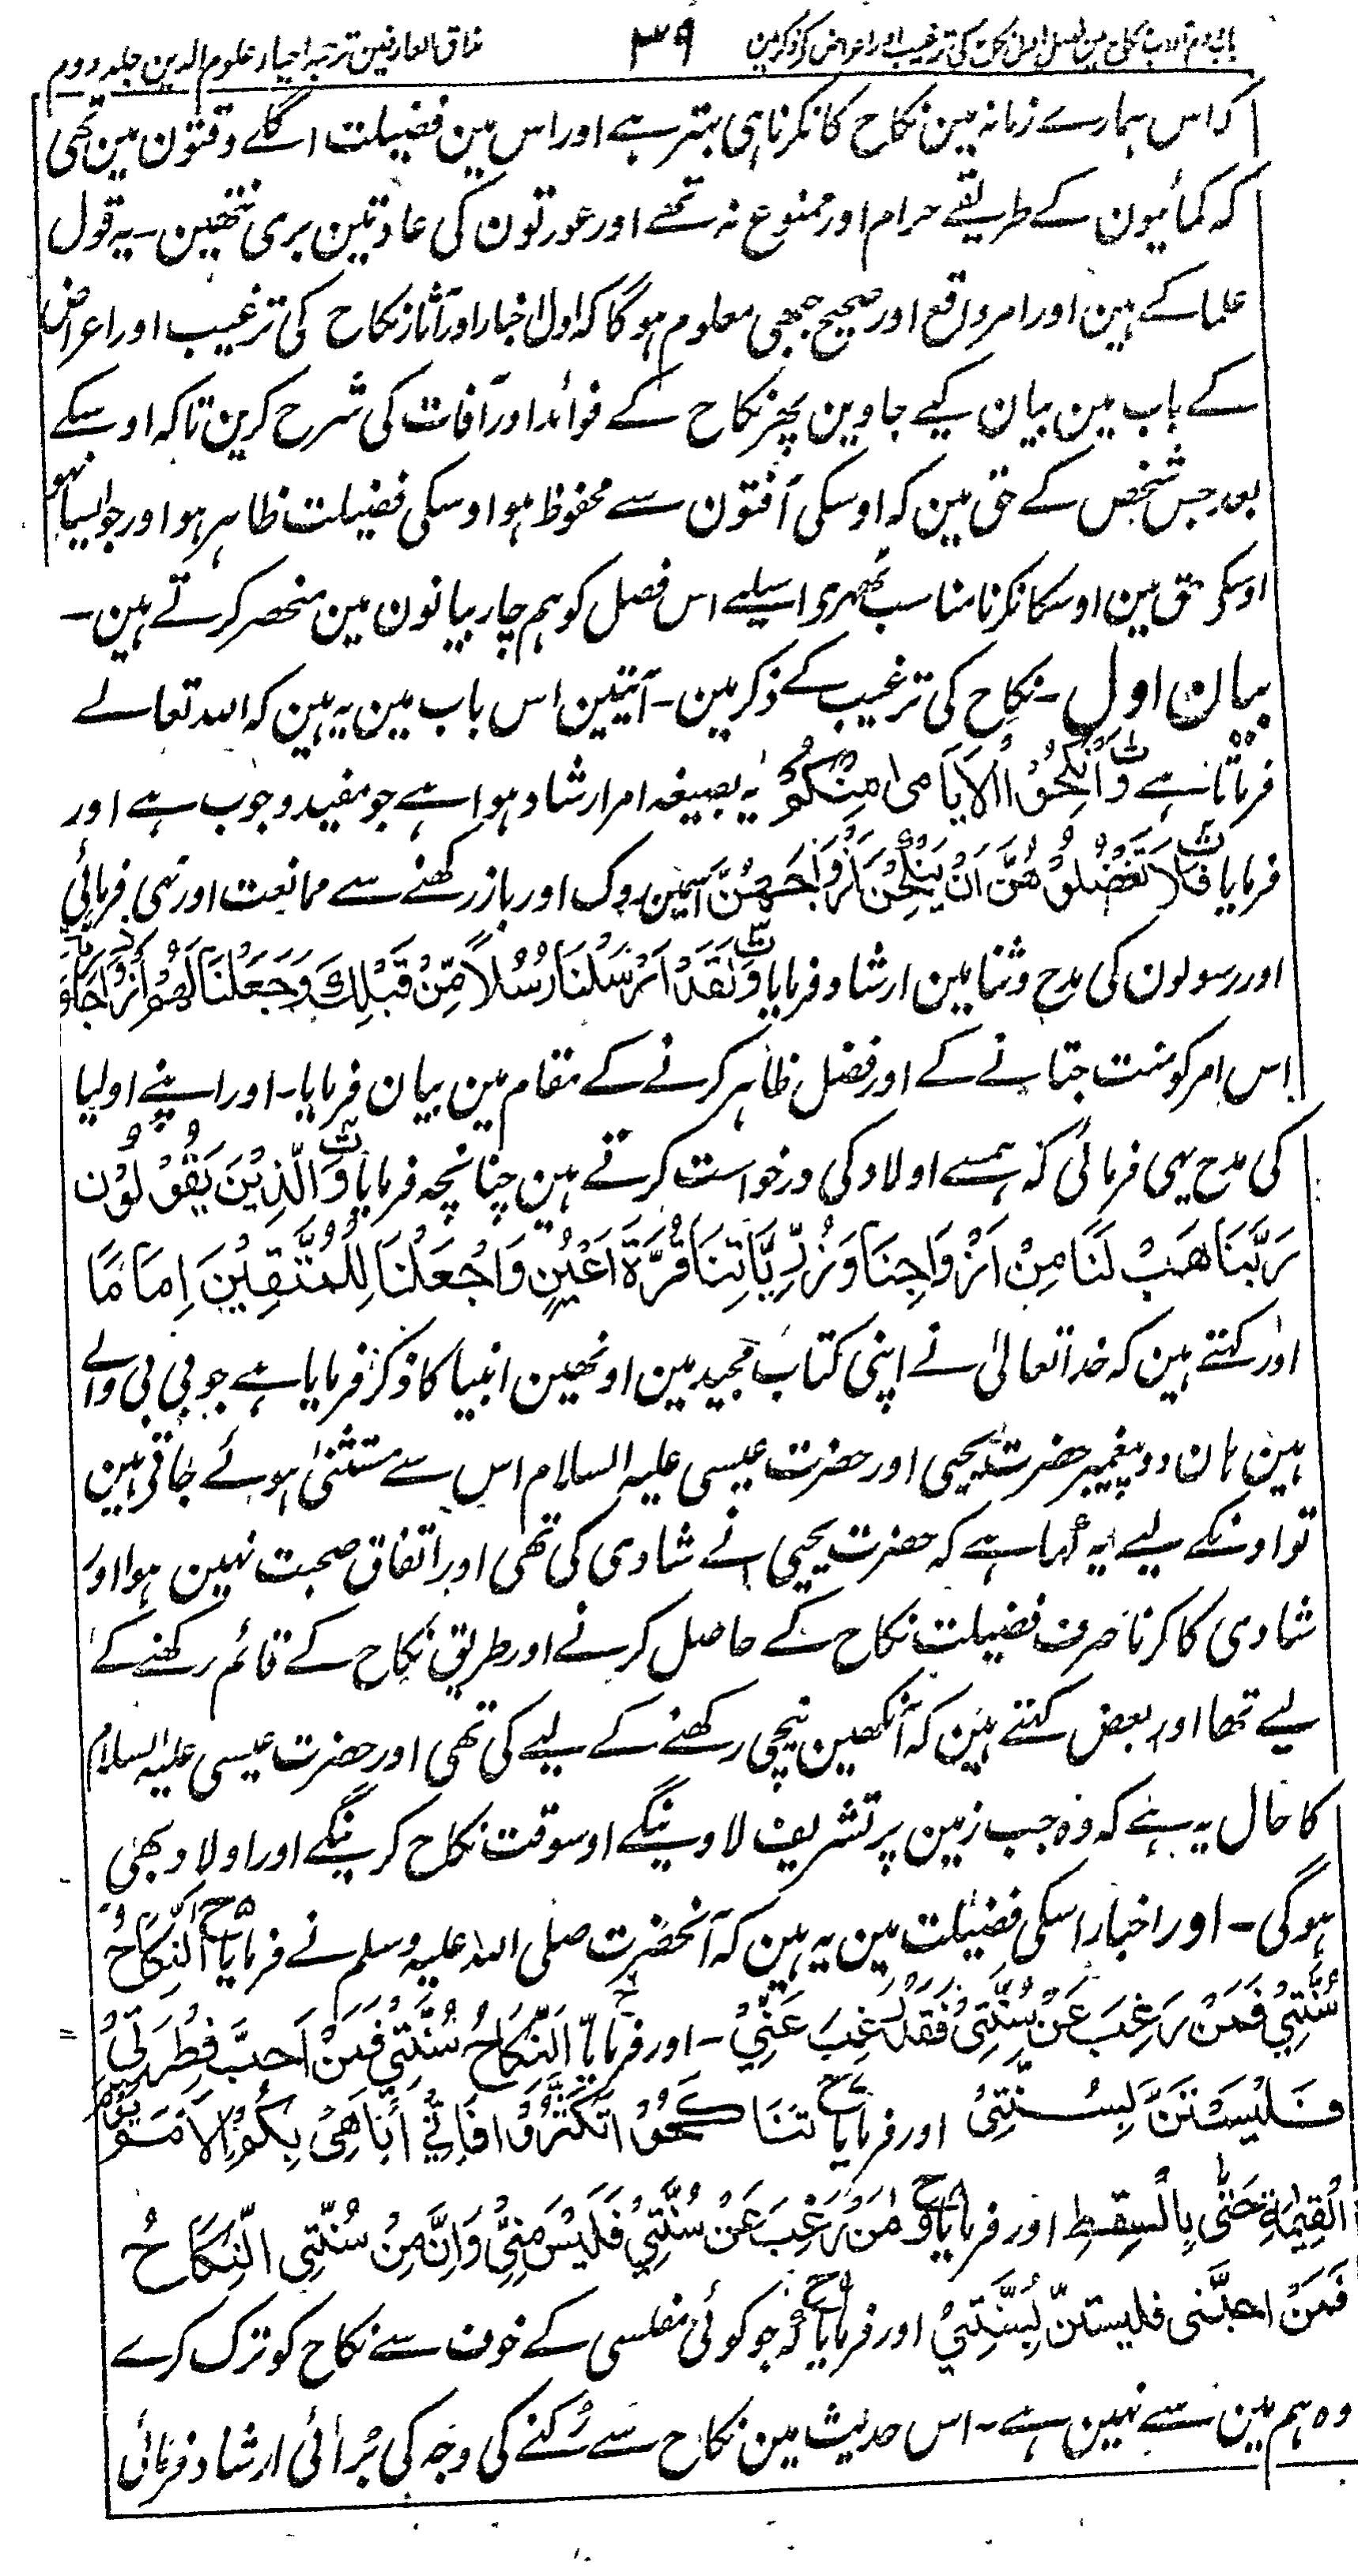 باب دوم آداب نکاح مین فصل اول نکاح کی ترغیب اور اعراض کے ذکر مین ۳۹ مذاق العارفین ترجمہ احیاء علوم الدین جلد دوم
کہ اس ہمارے زمانہ مین نکاح کا نکرنا ہی بہتر ہے اور اس مین فضیلت اگلے وقتون مین تھی
کہ کمائیون کے طریقے حرام اور ممنوع نہ تھے اور عورتون کی عادتین بری نتھین۔ یہ قول
علما کے ہین اور امر واقع اور صحیح جبھی معلوم ہوگا کہ اول اخبار اور آثار نکاح کی ترغیب اور اعراض
کے باب مین بیان کیے جاوین پھر نکاح کے فوائد اور آفات کی شرح کرین تاکہ اوسکے
بعد جس شخص کے حق مین کہ اوسکی آفتون سے محفوظ ہو اوسکی فضیلت ظاہر ہو اور جو ایسا نہو
اوسکی حق مین اوسکا نکرنا مناسب ٹھہری اسیلیے اس فصل کو ہم چار بیانون مین منحصر کرتے ہین۔
بیان اول۔ نکاح کی ترغیب کے ذکر مین۔ آیتین اس باب مین یہ ہین کہ اللہ تعالے
فرماتا ہے وَاَنْکِحُوْا الْاَیَامٰی مِنْکُمْ یہ بصیغہ امر ارشاد ہوا ہے جو مفید وجوب ہے اور
فرمایا فَلَا تَعْضُلُوْ هُنَّ اَنْ یَنْکِحْنَ اَزْوَاجَهُنَّ اسمین روک اور باز رکھنے سے ممانعت اور نہی فرمائی
اور رسولون کی مدح و ثنا مین ارشاد فرمایا وَلَقَدْ اَرْسَلْنَا رُسُلًا مِّنْ قَبْلِكَ وَجَعَلْنَا لَهُمْ اَزْوَاجًا وَّ
اس امر کو منت جتانے کے اور فضل ظاہر کرنے کے مقام مین بیان فرمایا۔ اور اپنے اولیا
کی مدح یہی فرمائی کہ ہمسے اولاد کی درخواست کرتے ہین چنانچہ فرمایا وَالَّذِیْنَ یَقُوْلُوْنَ
رَبَّنَا هَبْ لَنَا مِنْ اَزْوَاجِنَا وَذُرِّیَّاتِنَا قُرَّةَ اَعْیُنٍ وَاجْعَلْنَا لِلْمُتَّقِیْنَ اِمَامًا
اور کہتے ہین کہ خدا تعالیٰ نے اپنی کتاب مجید مین اونھین انبیا کا ذکر فرمایا ہے جو بی بی والے
ہین ہان دو پیغمبر حضرت یحیی اور حضرت عیسی علیہ السلام اس سے مستثنیٰ ہوئے جاتے ہین
تو اونکے لیے یہ کہا ہے کہ حضرت یحیی نے شادی کی تھی اور اتفاق صحبت نہین ہوا اور
شادی کا کرنا صرف فضیلت نکاح کے حاصل کرنے اور طریق نکاح کے قائم رکھنے کے
لیے تھا اور بعض کہتے ہین کہ آنکھین نیچی رکھنے کے لیے کی تھی اور حضرت عیسی علیہ السلام
کا حال یہ ہے کہ وہ جب زمین پر تشریف لاوینگے اوسوقت نکاح کرینگے اور اولاد بھی
ہوگی۔ اور اخبار اسکی فضیلت مین یہ ہین کہ آنحضرت صلی اللہ علیہ وسلم نے فرمایا اَلنِّکَاحُ
سُنَّتِیْ فَمَنْ رَغِبَ عَنْ سُنَّتِیْ فَقَدْ رَغِبَ عَنِّیْ۔ اور فرمایا اَلنِّکَاحُ سُنَّتِیْ فَمَنْ اَحَبَّ فِطْرَتِیْ
فَلْیَسْتَنَّ بِسُنَّتِیْ اور فرمایا تَنَاکَحُوْا تَکْثُرُوْا فَاِنِّیْ اُبَاهِیْ بِکُمُ الْاُمَمَ یَوْمَ
الْقِیٰمَةِ حَتّٰی بِالسِّقْطِ اور فرمایا وَمَنْ رَغِبَ عَنْ سُنَّتِیْ فَلَیْسَ مِنِّیْ وَاِنَّ مِنْ سُنَّتِی النِّکَاحُ
فَمَنْ احبَّنی فلیستنّ بِسُنَّتِیْ اور فرمایا کہ جو کوئی مفلسی کے خوف سے نکاح کو ترک کرے
وہ ہم مین سے نہین ہے۔ اس حدیث مین نکاح سے رُکنے کی وجہ کی بُرائی ارشاد فرمائی